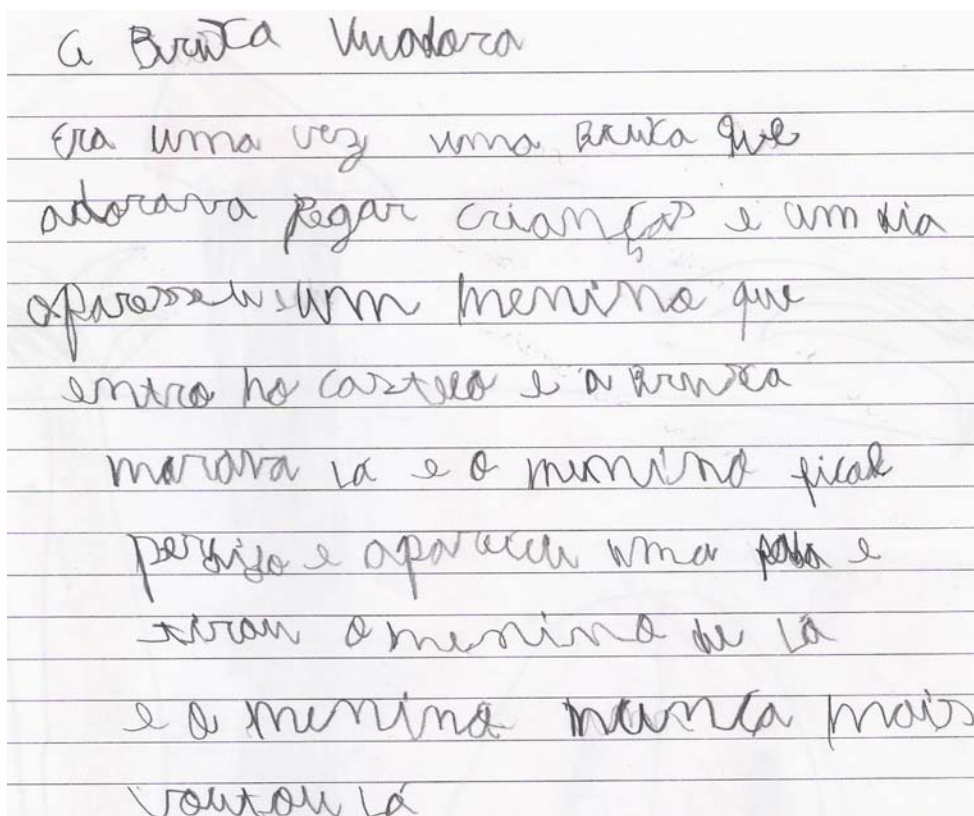 A Bruxa Vuadora
Era uma vez uma Bruxa que
adorava pegar crianças e um dia
aparesseu um menino que
entro no castelo e a Bruxa
morava lá e o menino ficol
perdido e apareceu uma e
tirou o menino de lá
e o menino nunca mais
voutou lá